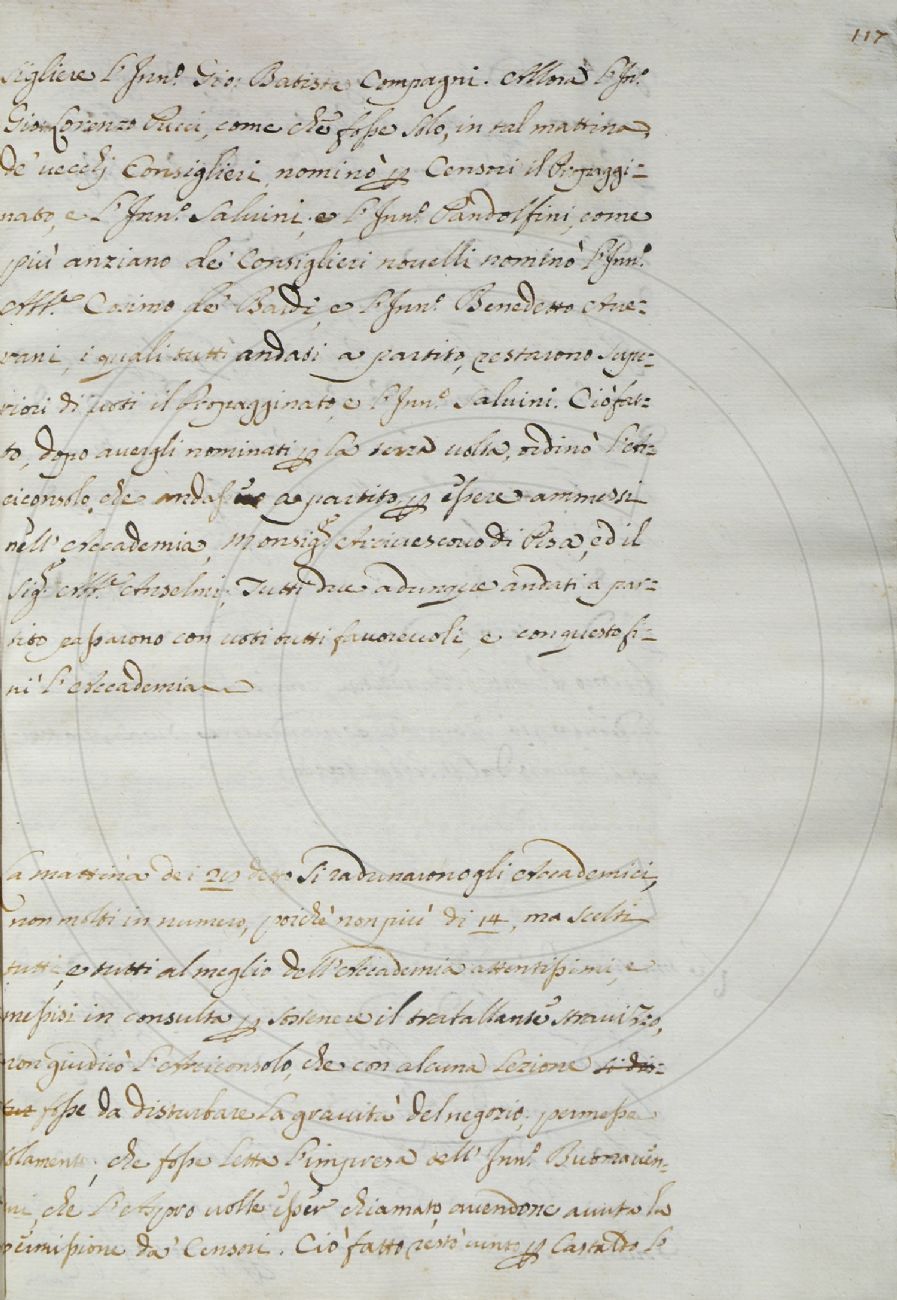 117
sigliere l'Inn.º Gio: Batista Compagni. Allora l'In.º
Gio: Lorenzo Pucci, come che fosse solo, in tal mattina,
de' vecchj Consiglieri, nominò p Censori il Propaggi-
nato, e l'Inn.º Salvini, e l'Inn.º Pandolfini, come
più anziano de' Consiglieri novelli nominò l'Inn.º
Cosimo de' Bardi, e l'Inn.º Benedetto Ave-
rani, i quali tutti andati a partito, restarono supe-
riori di voti il Propagginato, e l'Inn.º Salvini. Ciò fat-
to, dopo avergli nominati p la terza volta, ordinò l'Ar-
ciconsolo, che a partito p essere ammessi
nell'Accademia, Monsig.r Arcivescovo di Pisa, ed il
Sig.r Anselmi. Tutti due adunque andati a par-
tito passarono con voti tutti favorevoli, e con questo fi-
nì l'Accademia
La mattina de i detto si radunarono gli Accademici,
non molti in numero, poichè non più di 14, ma scelti
tutti, e tutti al meglio dell'Accademia attentissimi, e
messisi in consulta p sostenere il traballante stravizzo,
non giudicò l'Arciconsolo, che con alcuna lezione si dis-
fosse da disturbare la gravità del negozio, permesse
solamente, che fosse letta l'impresa dell'Inn.º Buonaven-
ni, che l'Aspro volle esser chiamato, avendone avuta la
permissione da' Censori. Ciò fatto restò vinto p Castaldo l'